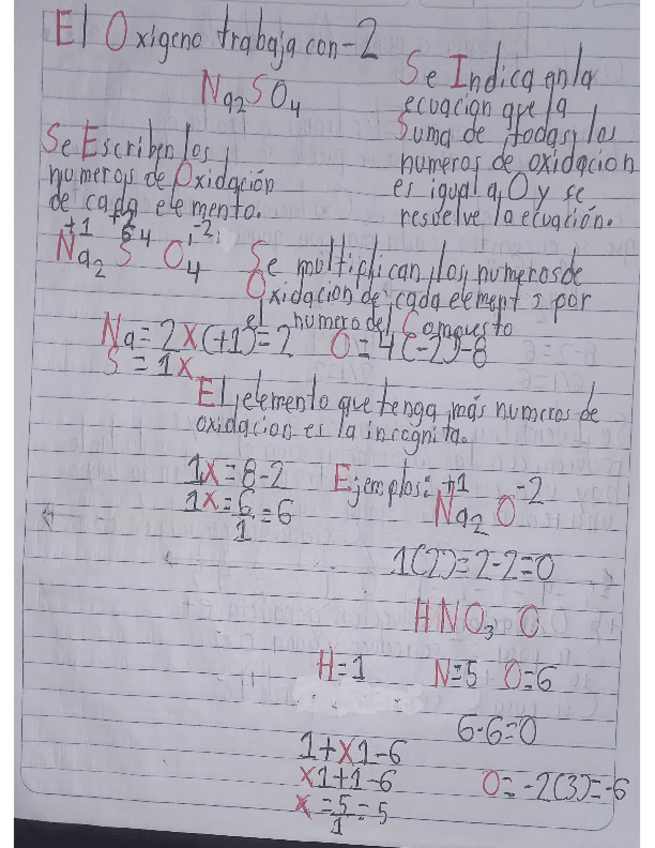 El Oxigeno trabaja con -2
Na2SO4
Se Indica en la
ecuacion que la
Suma de todas los
numeros de oxidacion
es igual a 0 y se
resuelve la ecuación.
Se Escriben los
numeros de Oxidación
de cada elemento.
+1 +6 4 -2
Na2 S O4
Se multiplican los numeros de
Oxidacion de cada element 2 por
el numero del Compuesto
Na = 2x(+1) = 2 O = 4(-2) -8
S = 1x
El elemento que tenga más numeros de
oxidacion es la incognita.
1x = 8-2
1x = 6/1 = 6
Ejemplos: +1 -2
Na2 O
1(2) = 2-2 = 0
HNO3 O
H = 1 N = 5 O = 6
6-6=0
1+x1-6
x1+1-6
x = 5/1 = 5
O = -2(3) = -6